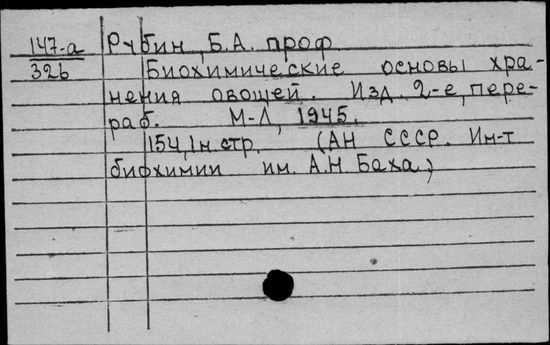 147-а Рубин, Б.А. проф.
326 Биохимические основы хра-
нения овощей. Изд. 2-е, пере-
раб. М-Л, 1945.
154, 1 н. стр. (АН СССР. Ин-т
биохимии им. А.Н Баха)